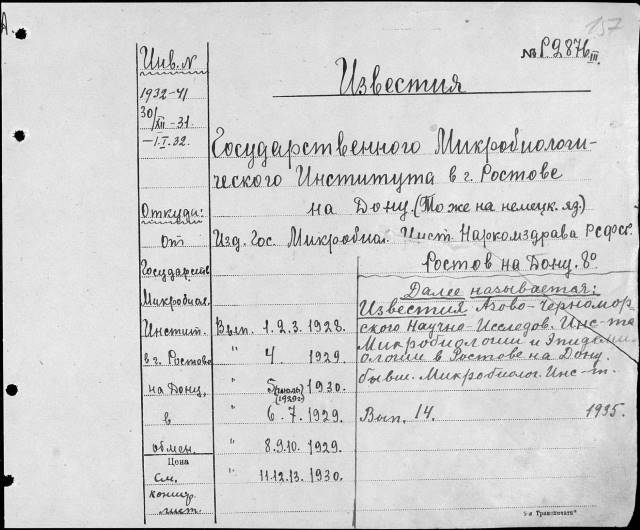 А.
157
№ P.2876 III.
Инв. N
Известия
1932-41
30/XII-31.
-1.I.32.
Государственного Микробиологи-
ческого Института в г. Ростове
на Дону. (То же на немецк. яз.)
Откуда:
от
Изд. Гос. Микробиол. Инст. Наркомздрава РСФСР.
Ростов на Дону. 8°
Государств.
Микробиол.
Инстит.
в г. Ростове
на Дону,
в
обмен.
Цена
См.
контр.
лист.
Вып. 1. 2. 3. 1928.
" 4 1929.
" 5 (июль) (1929г) 1930.
" 6. 7. 1929.
" 8.9.10. 1929.
" 11.12.13. 1930.
Далее называется:
Известия Азово-Черномор
ского Научно-Исследов. Инс-та
Микробиологии и Эпидеми-
ологии в Ростове на Дону.
бывш. Микробиолог. Инс-т.
Вып. 14. 1935.
5-я Транспечати"